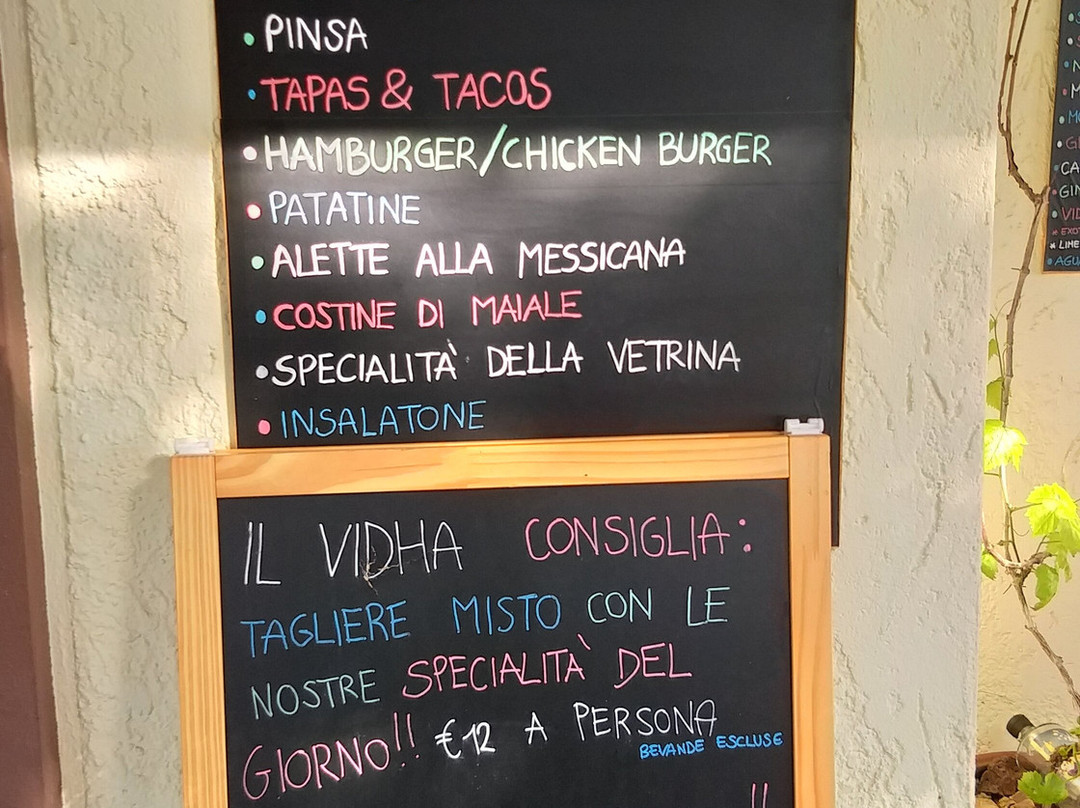 • PINSA
• TAPAS & TACOS
• HAMBURGER/CHICKEN BURGER
• PATATINE
• ALETTE ALLA MESSICANA
• COSTINE DI MAIALE
• SPECIALITÀ DELLA VETRINA
• INSALATONE
IL VIDHA CONSIGLIA:
TAGLIERE MISTO CON LE
NOSTRE SPECIALITÀ DEL
GIORNO!! €12 A PERSONA
BEVANDE ESCLUSE